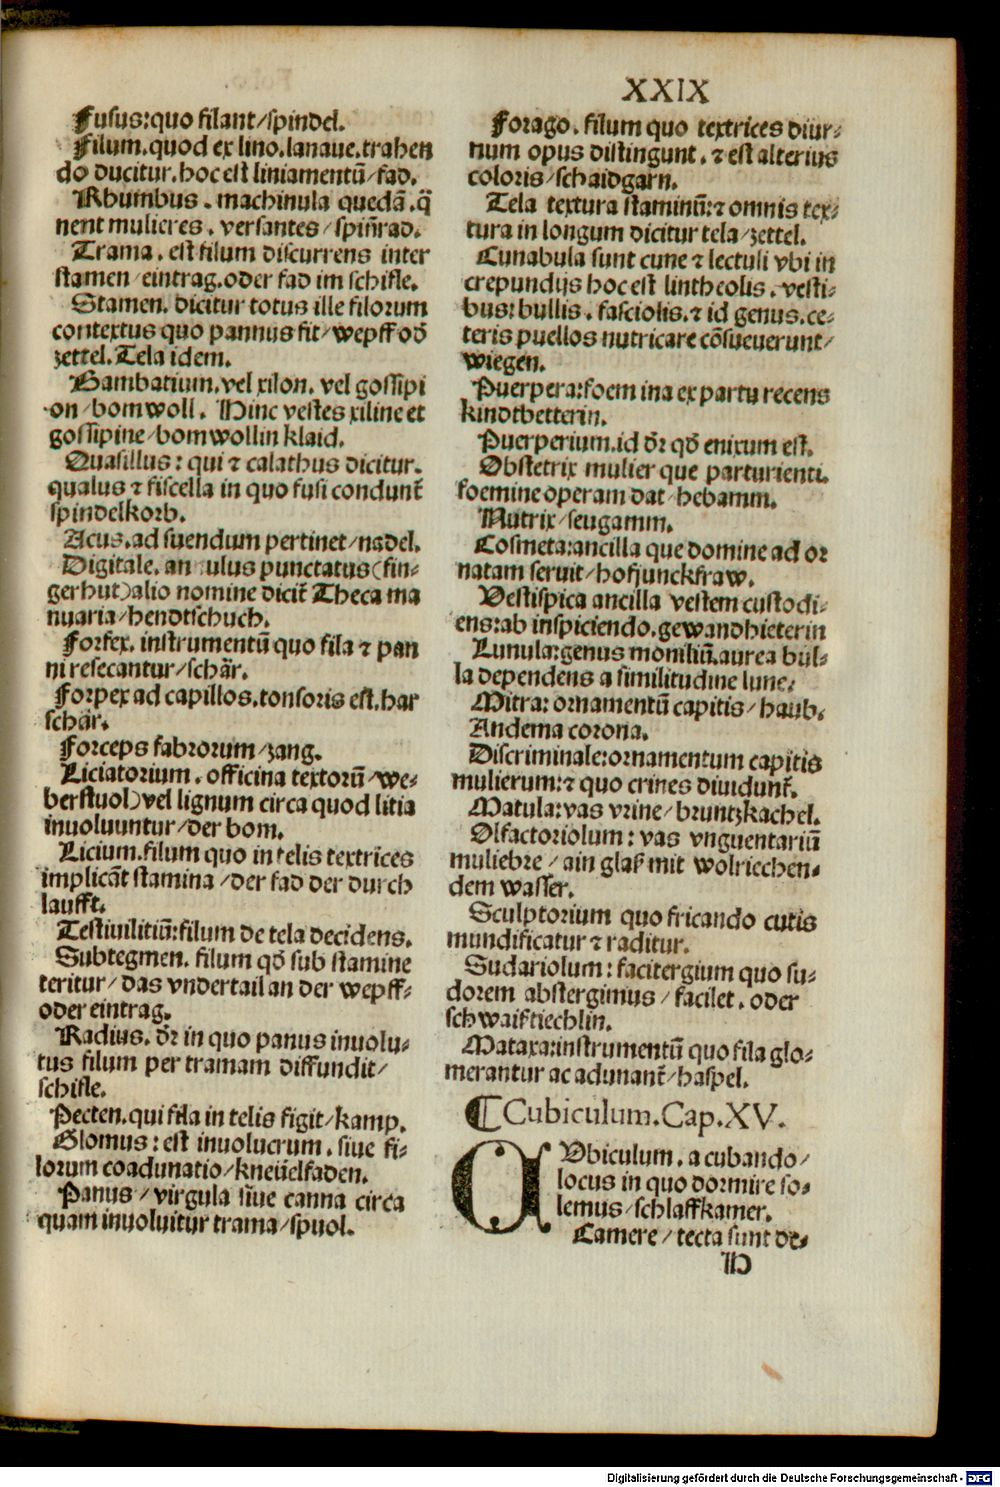 XXIX
Fusus:quo filant/spindel.
Filum.quod ex lino.lanaue.trahen
do ducitur.hoc est liniamentū/fad.
Rhumbus. machinula quedā.q̄
nent mulieres. versantes/spiñrad.
Trama. est filum discurrens inter
stamen/eintrag.oder fad im schifle.
Stamen. dicitur totus ille filorum
contextus quo pannus fit/wepff od̄
zettel.Tela idem.
Bambatium.vel xilon. vel gossipi
on/bomwoll. Hinc vestes xiline et
gossipine/bomwollin klaid.
Quasillus: qui ⁊ calathus dicitur.
qualus ⁊ fiscella in quo fusi condunt̄
spindelkorb.
Acus.ad suendum pertinet/nadel.
Digitale. an ulus punctatus(fin-
gerhut)alio nomine dicit̄ Theca ma
nuaria/hendtschuch.
Forfex. instrumentū quo fila ⁊ pan
ni resecantur/schär.
Forpex ad capillos.tonsoris est.har
schär.
Forceps fabrorum/zang.
Liciatorium. officina textorū/we-
berstuol)vel lignum circa quod litia
inuoluuntur/der bom.
Licium.filum quo in telis textrices
implicāt stamina/der fad der durch
laufft.
Testiuilitiū:filum de tela decidens.
Subtegmen. filum qd̄ sub stamine
teritur/das vndertail an der wepff-
oder eintrag.
Radius. dr̄ in quo panus inuolu-
tus filum per tramam diffundit/
schifle.
Pecten.qui fila in telis figit/kamp.
Glomus: est inuolucrum. siue fi-
lorum coadunatio/kneüelfaden.
Panus/virgula siue canna circa
quam inuoluitur trama/spuol.
Forago. filum quo textrices diur-
num opus distingunt. ⁊ est alterius
coloris/schaidgarn.
Tela textura staminū:⁊ omnis tex-
tura in longum dicitur tela/zettel.
Cunabula sunt cune ⁊ lectuli vbi in
crepundijs hoc est lintheolis. vesti-
bus: bullis. fasciolis.⁊ id genus.ce-
teris puellos nutricare cōsueuerunt/
wiegen.
Puerpera:foem ina ex partu recens
kindtbetterin.
Puerperium.id dr̄ qd̄ enixum est.
Obstetrix mulier que parturienti.
foemine operam dat/hebamm.
Nutrix/seugamm.
Cosmeta:ancilla que domine ad or
natam seruit/hofjunckfraw.
Vestispica ancilla vestem custodi-
ens:ab inspiciendo.gewandhieterin
Lunula:genus moniliū.aurea bul-
la dependens a similitudine lune.
Mitra: ornamentū capitis/haub.
Andema corona.
Discriminale:ornamentum capitis
mulierum:⁊ quo crines diuidunt̄.
Matula:vas vrine/bruntzkachel.
Olfactoriolum: vas vnguentariū
muliebre/ain glaß mit wolriechen-
dem wasser.
Sculptorium quo fricando cutis
mundificatur ⁊ raditur.
Sudariolum: facitergium quo su-
dorem abstergimus/facilet. oder
schwaißtiechlin.
Mataxa:instrumentū quo fila glo-
merantur ac adunant̄/haspel.
¶Cubiculum.Cap.XV.
CVbiculum. a cubando/
locus in quo dormire so-
lemus/schlaffkamer.
Camere/tecta sunt de-
H
Digitalisierung gefördert durch die Deutsche Forschungsgemeinschaft - DFG